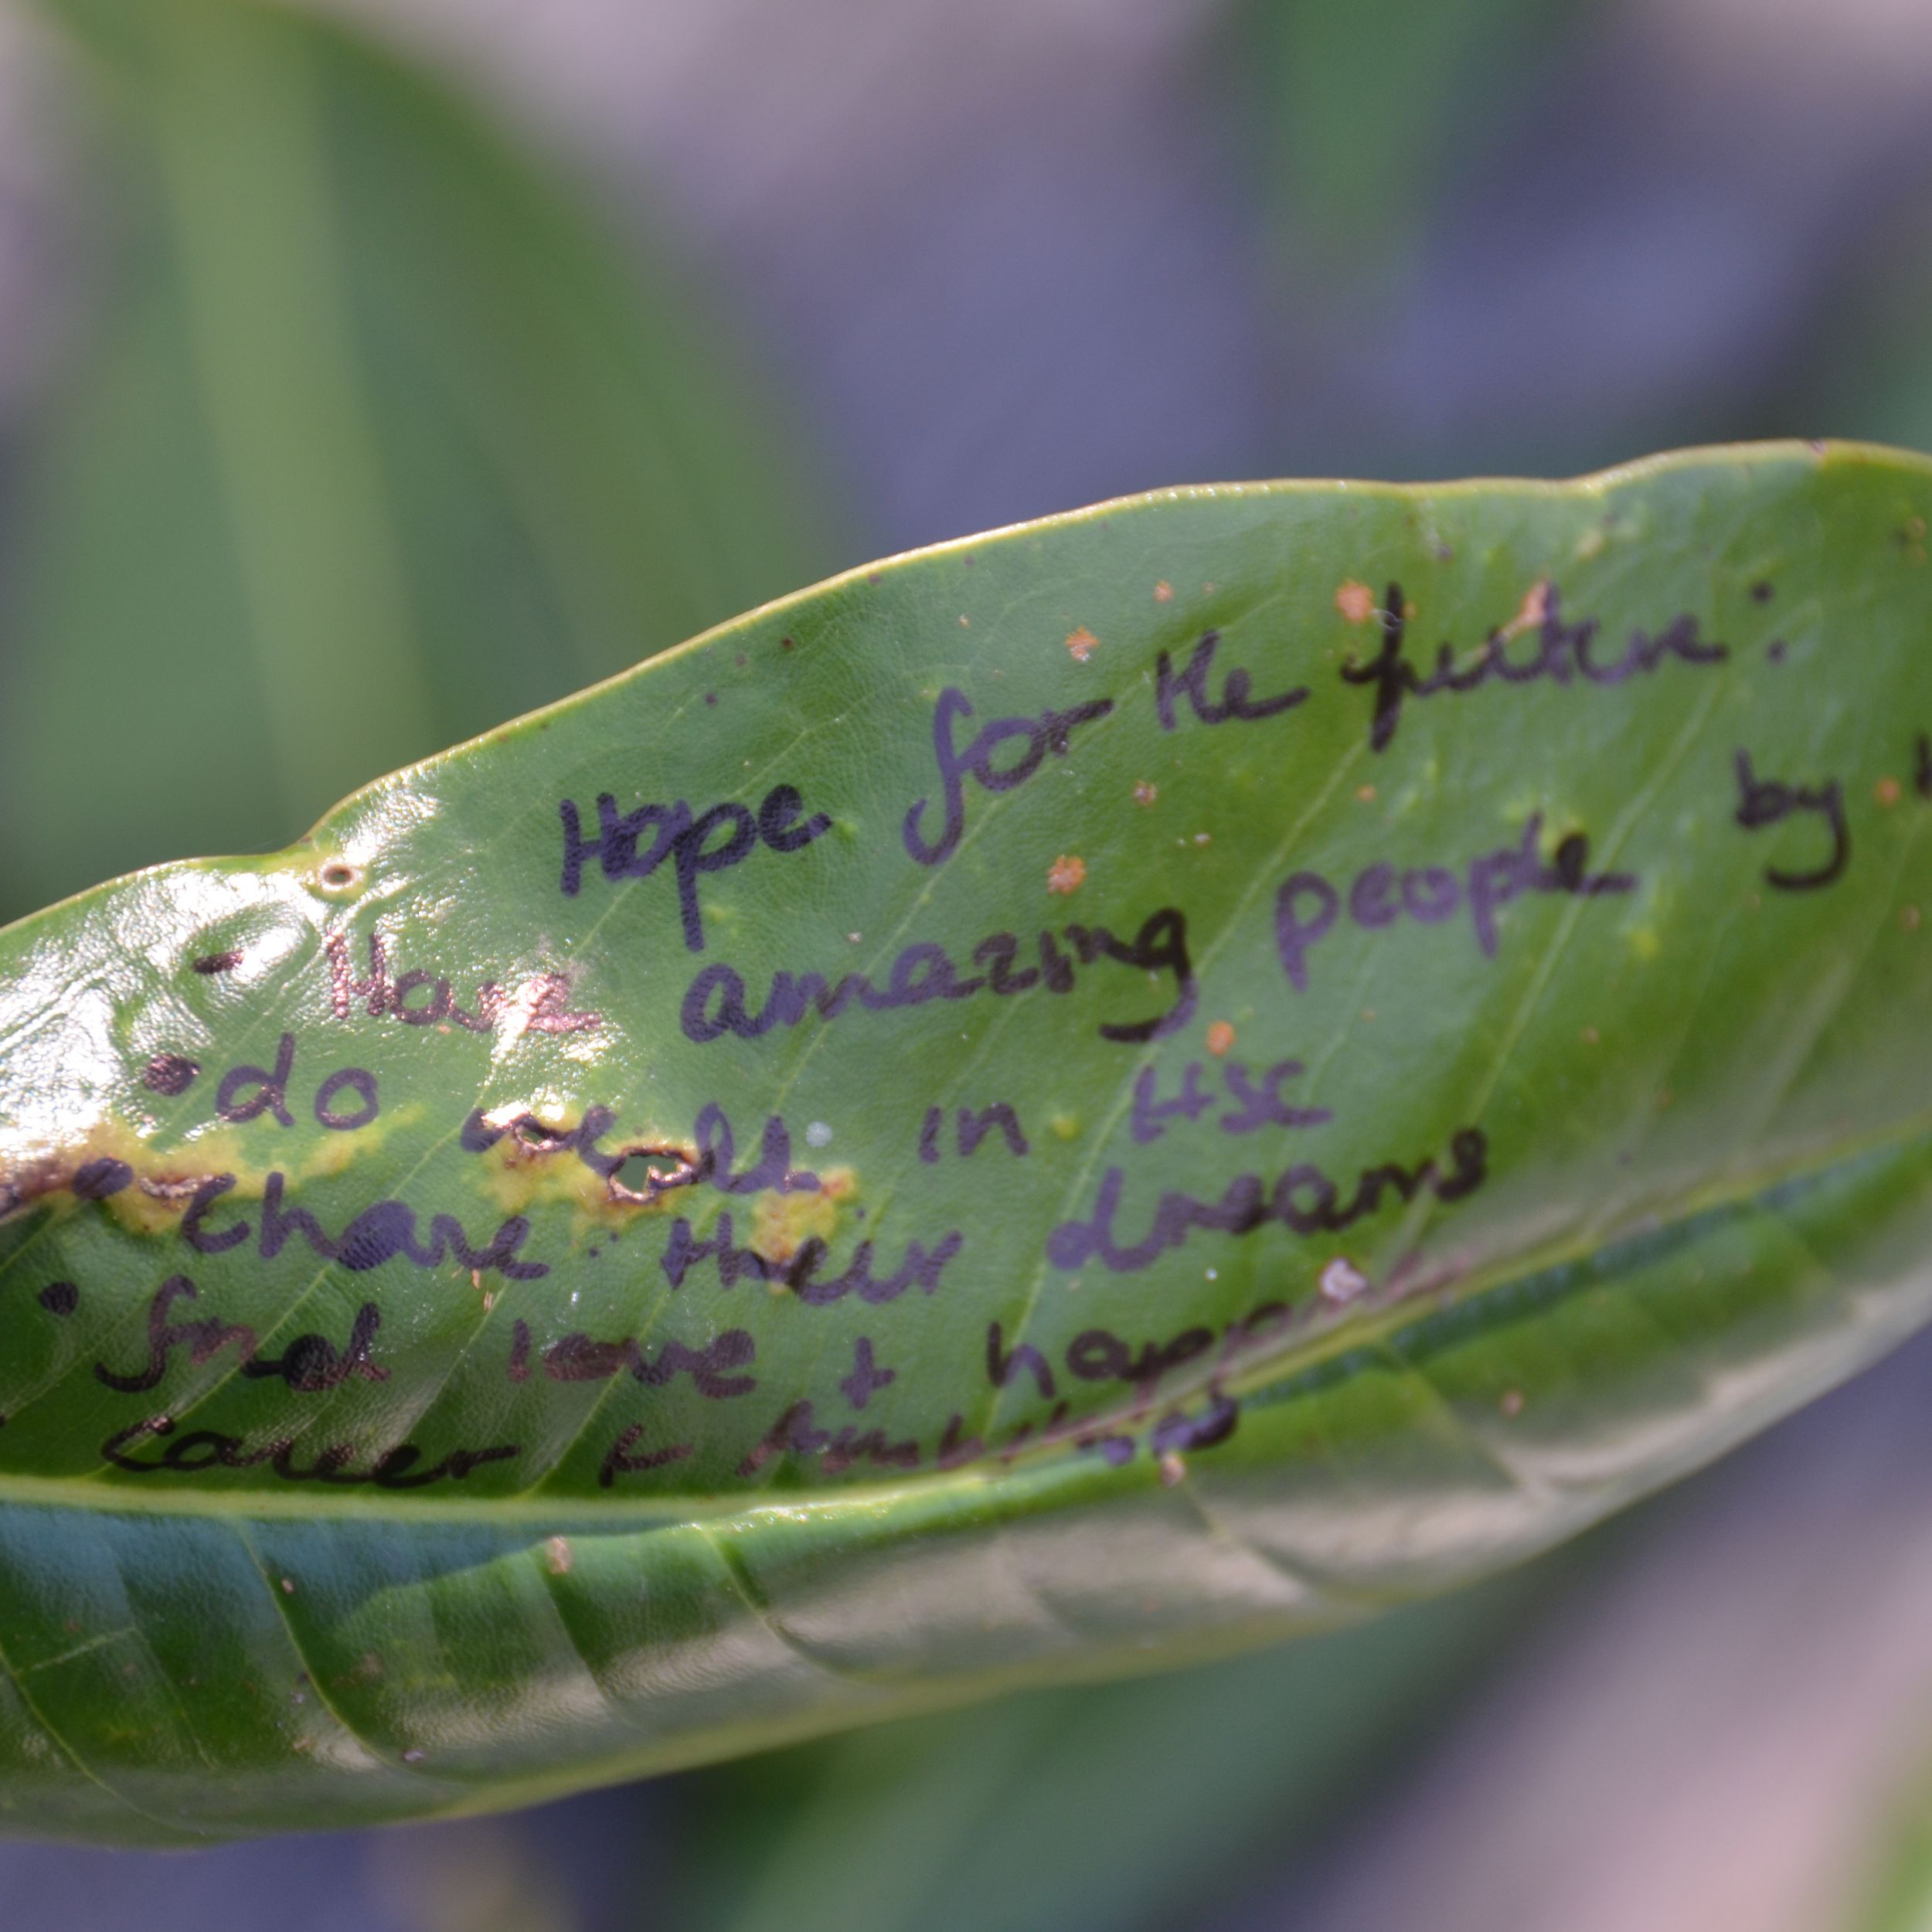 Hope for the future:
- Have amazing people by
• do well in HSC
• Chase their dreams
• find love + happ
career +